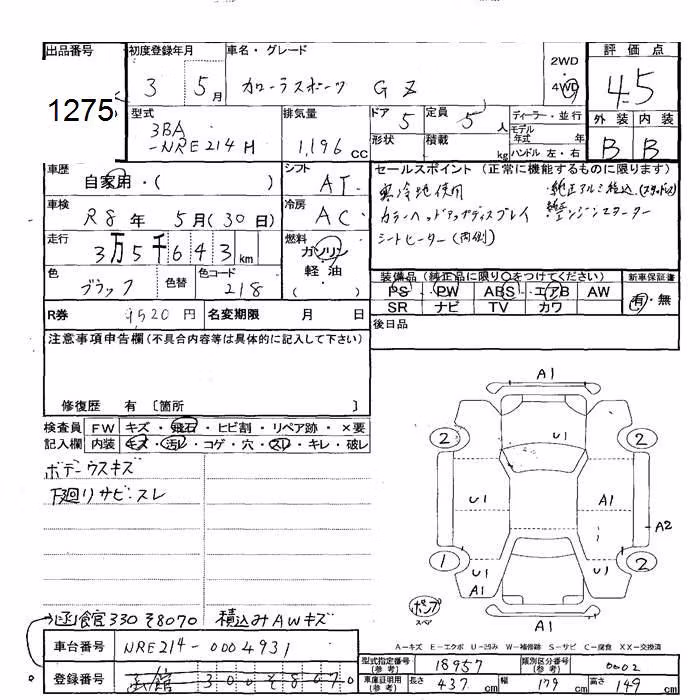 出品番号 初度登録年月 車名・グレード 評価点
1275 3 5月 カローラスポーツ GZ 2WD 4WD 4.5
型式 排気量 ドア 定員 ディーラー・並行 外装 内装
3BA 5 5人 モデル年式 年 B B
-NRE214H 1,196 CC 形状 積載 kg ハンドル 左・右
車歴 シフト セールスポイント (正常に機能するものに限ります)
自家用・( ) AT 寒冷地使用 純正アルミ積込(スタッドレス)
車検 R8年 5月(30日) 冷房 AC カラーヘッドアップディスプレイ 純正エンジンスターター
走行 3万5千643km 燃料 ガソリン シートヒーター(両側)
軽油
色 ブラック 色替 色コード 218 ( ) 装備品(純正品に限り○をつけてください) 新車保証書
PS PW ABS エアB AW 有・無
R券 9,520円 名変期限 月 日 SR ナビ TV カワ
注意事項申告欄(不具合内容等は具体的に記入して下さい) 後日品
修復歴 有 〔箇所 〕
検査員 FW キズ・飛石・ヒビ割・リペア跡・×要
記入欄 内装 キズ・汚レ・コゲ・穴・スレ・キレ・破レ
ボデーウスキズ
下廻りサビ・スレ
A1
2 U1 2
U1 A1
A2
1 U1 U1 2
A1
ポンプ
スペア
A1
函館330そ8070 積込みAWキズ
A－キズ E－エクボ U－凹み W－補修跡 S－サビ C－腐食 XX－交換済
車台番号 NRE214-0004931
型式指定番号(参考) 18957 類別区分番号(参考) 0002
登録番号 函館 300そ8070
車庫証明用(参考) 長さ 437cm 幅 179cm 高さ 149cm